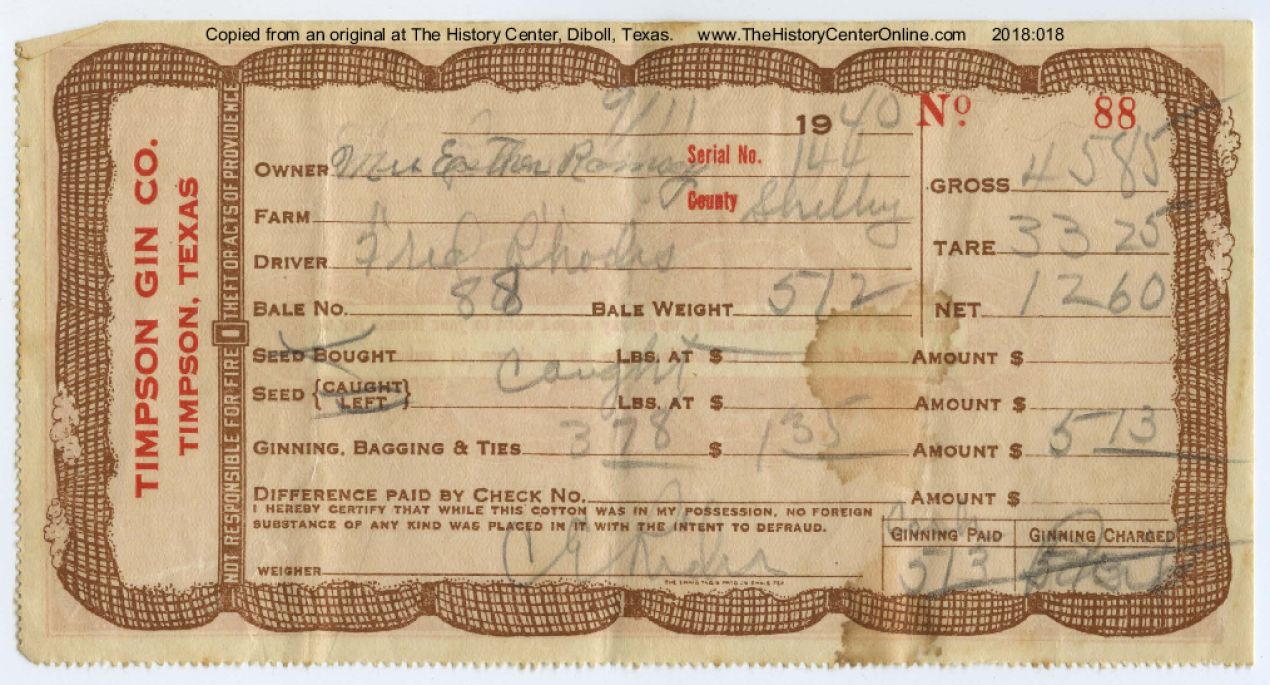 Copied from an original at The History Center, Diboll, Texas. www.TheHistoryCenterOnline.com 2018:018
TIMPSON GIN CO.
TIMPSON, TEXAS
NOT RESPONSIBLE FOR FIRE THEFT OR ACTS OF PROVIDENCE
9/11 1940
No 88
OWNER Mrs Easther Ramsey Serial No. 144
GROSS 4585
FARM County Shelby
TARE 3325
DRIVER Fred Rhodes
BALE NO. 88 BALE WEIGHT 512
NET 1260
SEED BOUGHT LBS. AT $ AMOUNT $
SEED {CAUGHT LEFT} Caught LBS. AT $ AMOUNT $
GINNING, BAGGING & TIES 378 $ 135 AMOUNT $ 513
DIFFERENCE PAID BY CHECK NO. AMOUNT $
I HEREBY CERTIFY THAT WHILE THIS COTTON WAS IN MY POSSESSION, NO FOREIGN
SUBSTANCE OF ANY KIND WAS PLACED IN IT WITH THE INTENT TO DEFRAUD.
GINNING PAID GINNING CHARGED
513
WEIGHER